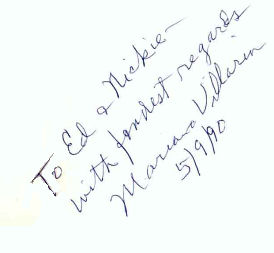 To Ed & Nickie -
with fondest regards
Mariano Villarin
5/9/90